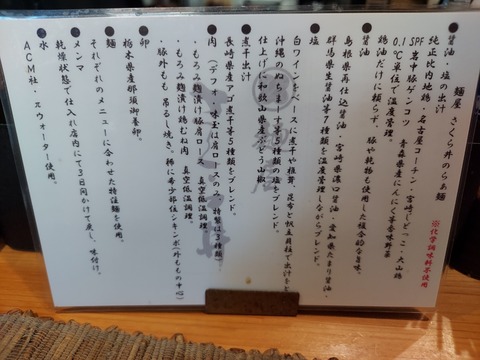 麺屋 さくら井のらぁ麺
※化学調味料不使用
●醤油・塩の出汁
純正比内地鶏・名古屋コーチン・宮崎じとっこ・大山鶏
SPF 名古屋豚ゲンコツ 青森県産にんにく等香味野菜
.1℃単位で温度管理。
鶏油だけに頼らず、豚や乾物も使用した複合的な旨味。
●醤油
島根県再仕込醤油・宮崎県濃口醤油・愛知県たまり醤油・
群馬県生醤油等7種類を温度管理しながらブレンド。
●塩
白ワインをベースに煮干や椎茸、昆布と帆立貝柱で出汁をと
沖縄のぬちまーす等5種類の塩をブレンド。
仕上げに和歌山県産ぶどう山椒
●煮干出汁
長崎県産アゴ煮干等5種類をブレンド。
●肉（デフォ味玉は肩ロースのみ、特製は3種類）
・もろみ麹漬け豚肩ロース 真空低温調理
・もろみ麹漬け鶏むね肉 真空低温調理
・豚外もも 吊るし焼き。稀に希少部位シキンボ（外ももの中心）
●卵
栃木県産那須御養卵。
●麺
それぞれのメニューに合わせた特注麺を使用。
●メンマ
乾燥状態で仕入れ店内にて3日間かけて戻し、味付け。
●水
ACM社・πウォーター使用。